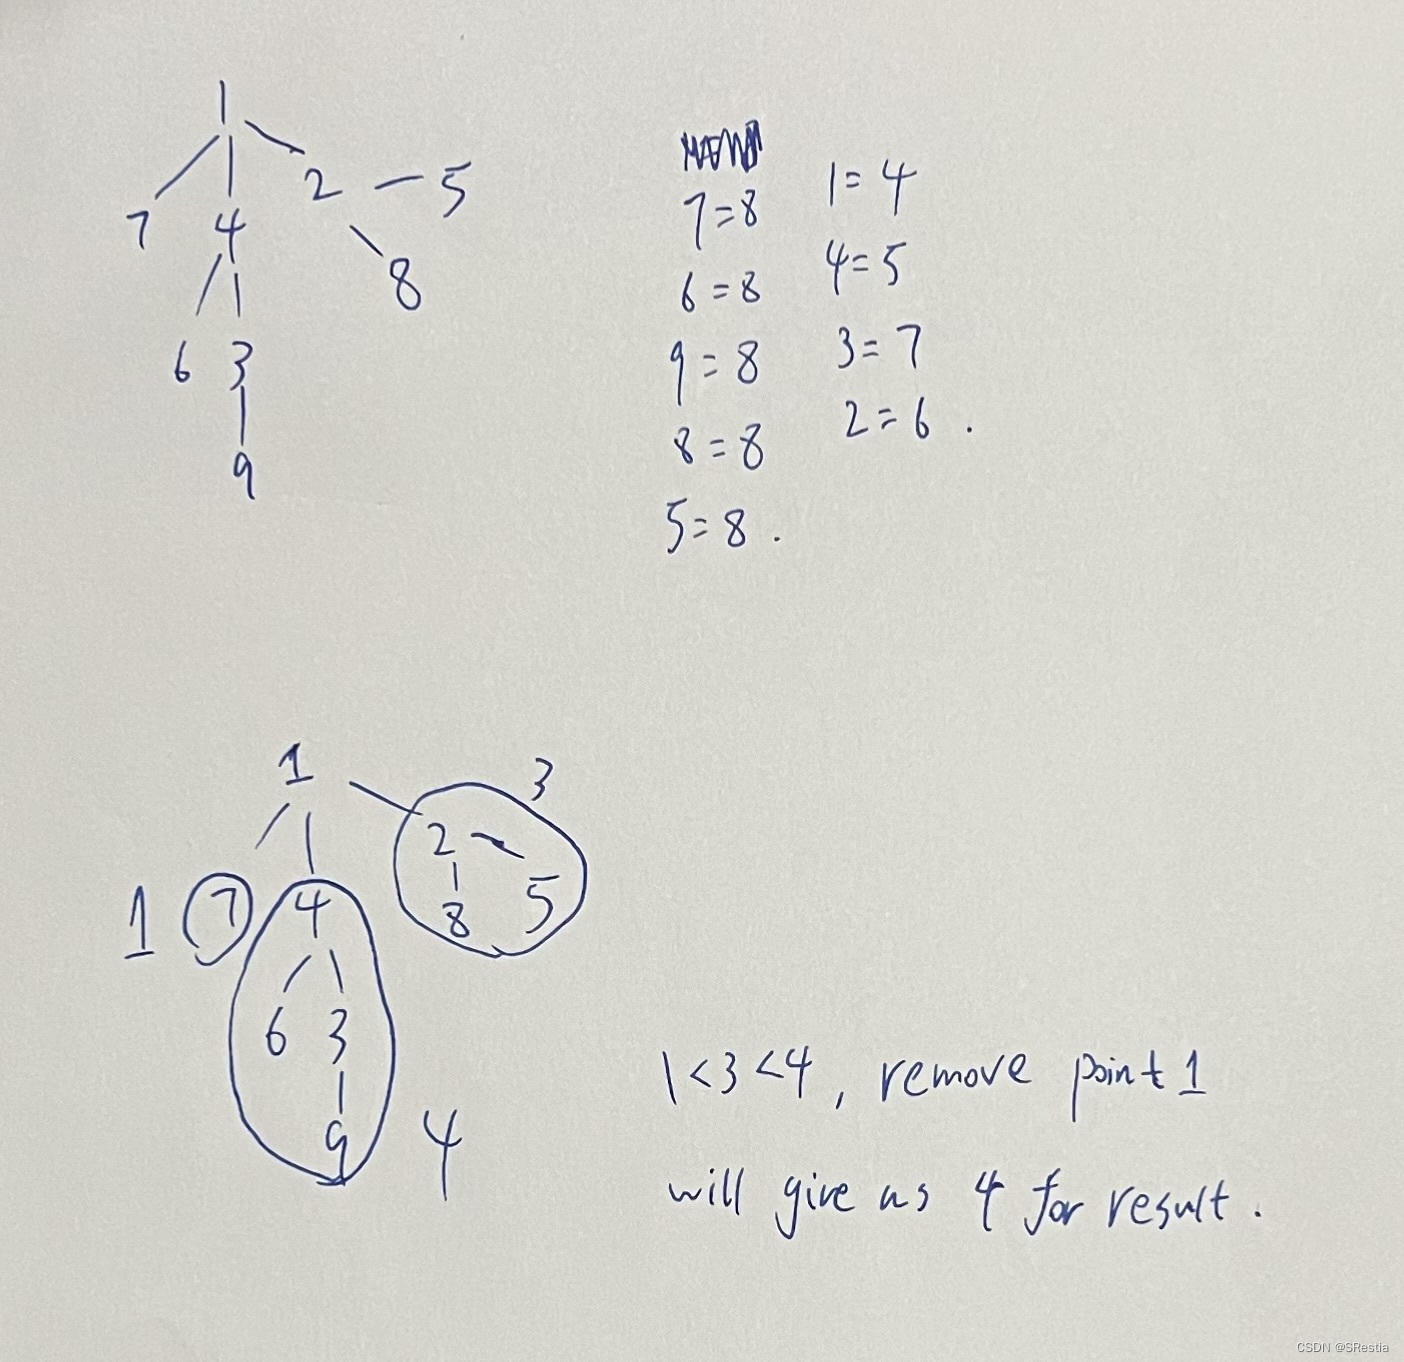 1
2 — 5
7 4
8
6 3
9
7=8
6=8
9=8
8=8
5=8.
1=4
4=5
3=7
2=6.
1 3
2
1 7 4 8 5
6 3
9 4
1<3<4, remove point 1
will give us 4 for result.
CSDN @SRestia